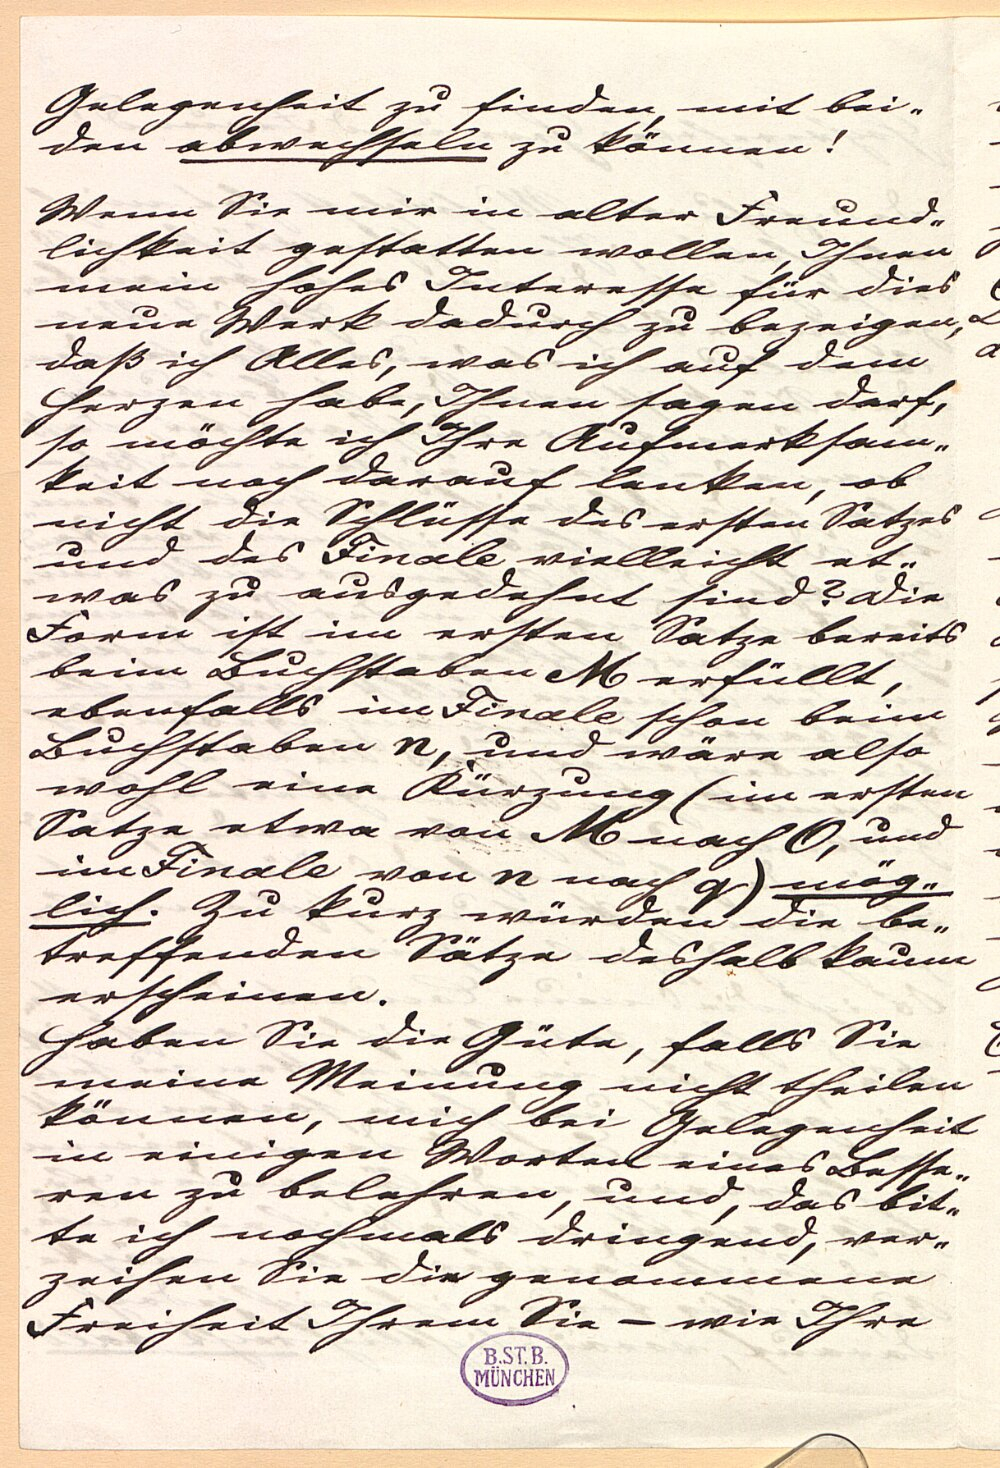 Gelegenheit zu finden, mit bei-
den abwechseln zu können!
Wenn Sie mir in alter Freund-
lichkeit gestatten wollen, Ihnen
mein hohes Interesse für dies
neue Werk dadurch zu bezeigen,
daß ich Alles, was ich auf dem
Herzen habe, Ihnen sagen darf,
so möchte ich Ihre Aufmerksam-
keit noch darauf lenken, ob
nicht die Schlüsse des ersten Satzes
und des Finale vielleicht et-
was zu ausgedehnt sind? Die
Form ist im ersten Satze bereits
beim Buchstaben M erfüllt,
ebenfalls im Finale schon beim
Buchstaben n, und wäre also
wohl eine Kürzung (im ersten
Satze etwa von M nach O, und
im Finale von n nach q) mög-
lich. Zu kurz würden die be-
treffenden Sätze deshalb kaum
erscheinen.
Haben Sie die Güte, falls Sie
meine Meinung nicht theilen
können, mich bei Gelegenheit
in einigen Worten eines Besse-
ren zu belehren, und, das bit-
te ich nochmals dringend, ver-
zeihen Sie die genommene
Freiheit Ihrem Sie – wie Ihre
B.ST.B.
MÜNCHEN